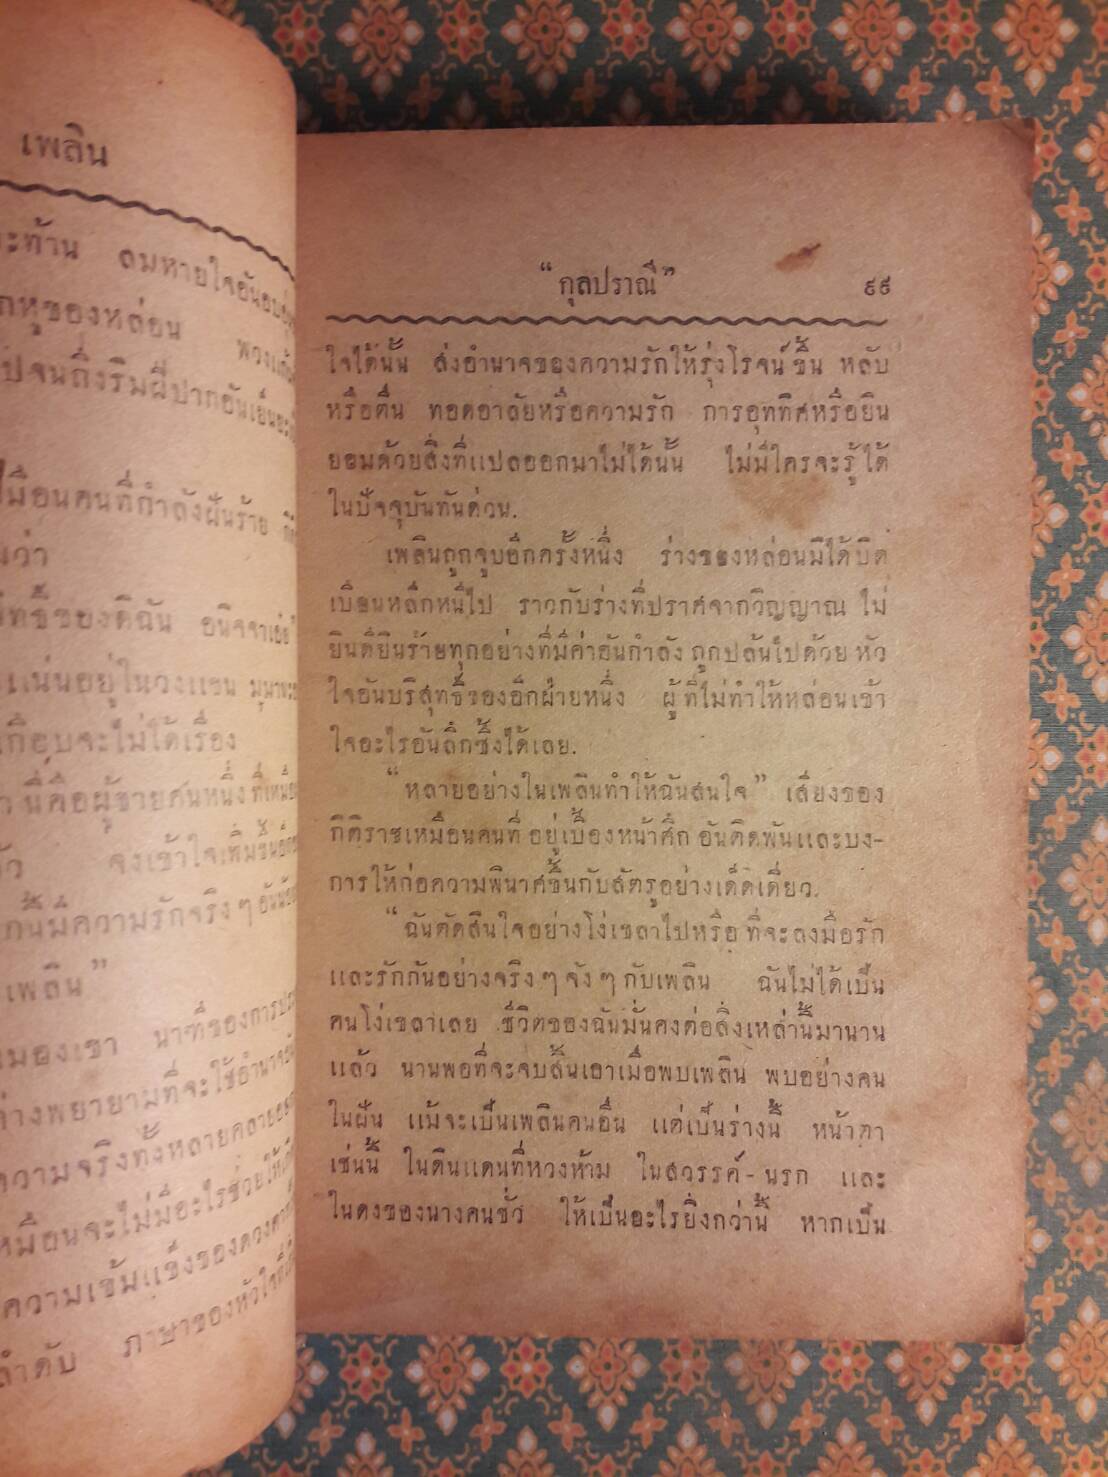 เพลิน
ะท้าน ลมหายใจอันอบอุ่น
กหูของหล่อน พวงแก้ม
ปจนถึงริมฝีปากอันเย็นยะ
มือนคนที่กำลังฝันร้าย
นว่า
ทธิ์ของดิฉัน อนิจจาเอ๋ย"
แน่นอยู่ในวงแขน
เกือบจะไม่ได้เรื่อง
นี่คือผู้ชายคนหนึ่ง ที่เหมือน
จงเข้าใจเพิ่มขึ้น
กนี้มีความรักจริง ๆ
เพลิน"
มองเขา นาฑีของการ
ต่างพยายามที่จะใช้อำนาจ
ความจริงทั้งหลายคลาย
หมือนจะไม่มีอะไรช่วยให้
ความเข้มแข็งของดวงตา
ลำดับ ภาษาของหัวใจที่
"กุลปราณี" ๙๙
ใจได้นั้น ส่งอำนาจของความรักให้รุ่งโรจน์ขึ้น หลับ
หรือตื่น ทอดอาลัยหรือความรัก การอุททิศหรือยิน
ยอมด้วยสิ่งที่แปลออกมาไม่ได้นั้น ไม่มีใครจะรู้ได้
ในปัจจุบันทันด่วน.
เพลินถูกจูบอีกครั้งหนึ่ง ร่างของหล่อนมิได้บิด
เบือนหลีกหนีไป ราวกับร่างที่ปราศจากวิญญาณ ไม่
ยินดียินร้ายทุกอย่างที่มีค่าอันกำลัง ถูกปล้นไปด้วย หัว
ใจอันบริสุทธิ์ของอีกฝ่ายหนึ่ง ผู้ที่ไม่ทำให้หล่อนเข้า
ใจอะไรอันลึกซึ้งได้เลย.
"หลายอย่างในเพลินทำให้ฉันสนใจ" เสียงของ
กิติราชเหมือนคนที่ อยู่เบื้องหน้าศึก อันติดพันและบง-
การให้ก่อความพินาศขึ้นกับสัตรูอย่างเด็ดเดี่ยว.
"ฉันตัดสินใจอย่างโง่เขลาไปหรือ ที่จะลงมือรัก
และรักกันอย่างจริง ๆ จัง ๆ กับเพลิน ฉันไม่ได้เป็น
คนโง่เขลาเลย ชีวิตของฉันมั่นคงต่อสิ่งเหล่านี้มานาน
แล้ว นานพอที่จะจบสิ้นเอาเมื่อพบเพลิน พบอย่างคน
ในฝัน แม้จะเป็นเพลินคนอื่น แต่เป็นร่างนี้ หน้าตา
เช่นนี้ ในดินแดนที่หวงห้าม ในสวรรค์-นรก และ
ในดงของนางคนชั่ว ให้เป็นอะไรยิ่งกว่านี้ หากเป็น